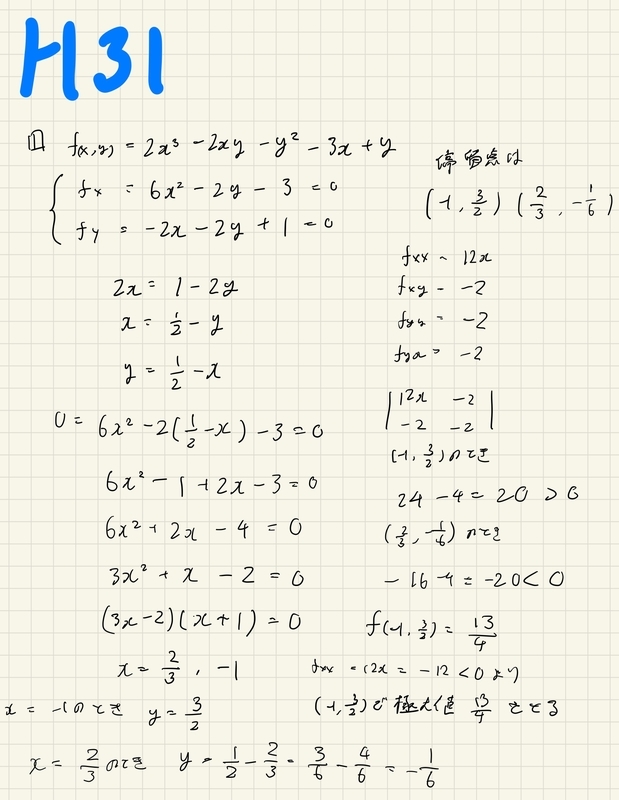 H31
[1] f(x,y) = 2x³ - 2xy - y² - 3x + y
fx = 6x² - 2y - 3 = 0
fy = -2x - 2y + 1 = 0
2x = 1 - 2y
x = 1/2 - y
y = 1/2 - x
0 = 6x² - 2(1/2 - x) - 3 = 0
6x² - 1 + 2x - 3 = 0
6x² + 2x - 4 = 0
3x² + x - 2 = 0
(3x - 2)(x + 1) = 0
x = 2/3 , -1
x = -1のとき y = 3/2
x = 2/3 のとき y = 1/2 - 2/3 = 3/6 - 4/6 = -1/6
停留点は
(-1, 3/2) (2/3, -1/6)
fxx = 12x
fxy = -2
fyy = -2
fyx = -2
|12x -2|
|-2 -2|
(-1, 3/2)のとき
24 - 4 = 20 > 0
(2/3, -1/6) のとき
-16 - 4 = -20 < 0
f(-1, 3/2) = 13/4
fxx = 12x = -12 < 0 より
(-1, 3/2)で 極大値 13/4 をとる